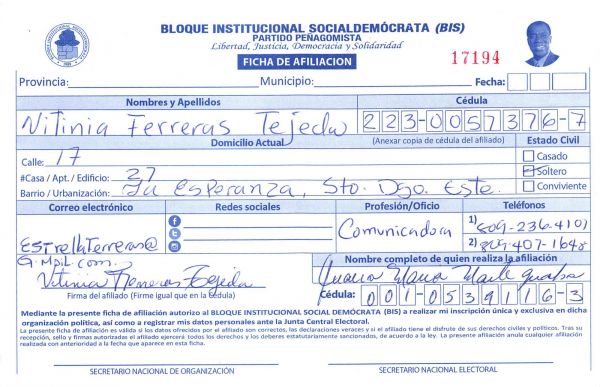 BLOQUE INSTITUCIONAL SOCIALDEMÓCRATA (BIS)
PARTIDO PEÑAGOMISTA
Libertad, Justicia, Democracia y Solidaridad
FICHA DE AFILIACION
17194
Provincia: Municipio: Fecha:
Nombres y Apellidos Cédula
Nitinia Ferreras Tejeda 223-0057376-7
Domicilio Actual (Anexar copia de cédula del afiliado) Estado Civil
Calle: 17 Casado
#Casa / Apt. / Edificio: 27 Soltero
Barrio / Urbanización: La Esperanza, Sto. Dgo. Este. Conviviente
Correo electrónico Redes sociales Profesión/Oficio Teléfonos
EstrellaFerreras@ Comunicadora 1) 809-236-4101
G.Mail.com. 2) 809-407-1648
Nombre completo de quien realiza la afiliación
Vitinia Ferreras Tejeda
Firma del afiliado (Firme igual que en la cédula) Cédula: 001-0539116-3
Mediante la presente ficha de afiliación autorizo al BLOQUE INSTITUCIONAL SOCIAL DEMÓCRATA (BIS) a realizar mi inscripción única y exclusiva en dicha
organización política, así como a registrar mis datos personales ante la Junta Central Electoral.
La presente ficha de afiliación es válida si los datos ofrecidos por el afiliado son correctos, las declaraciones veraces y si el afiliado tiene el disfrute de sus derechos civiles y políticos. Tras su
recepción, sello y firmas autorizadas el afiliado ejercerá todos los derechos y los deberes estatutariamente sancionados, de acuerdo a la ley. La presente afiliación anula cualquier afiliación
realizada con anterioridad a la fecha que aparece en esta ficha.
SECRETARIO NACIONAL DE ORGANIZACIÓN SECRETARIO NACIONAL ELECTORAL